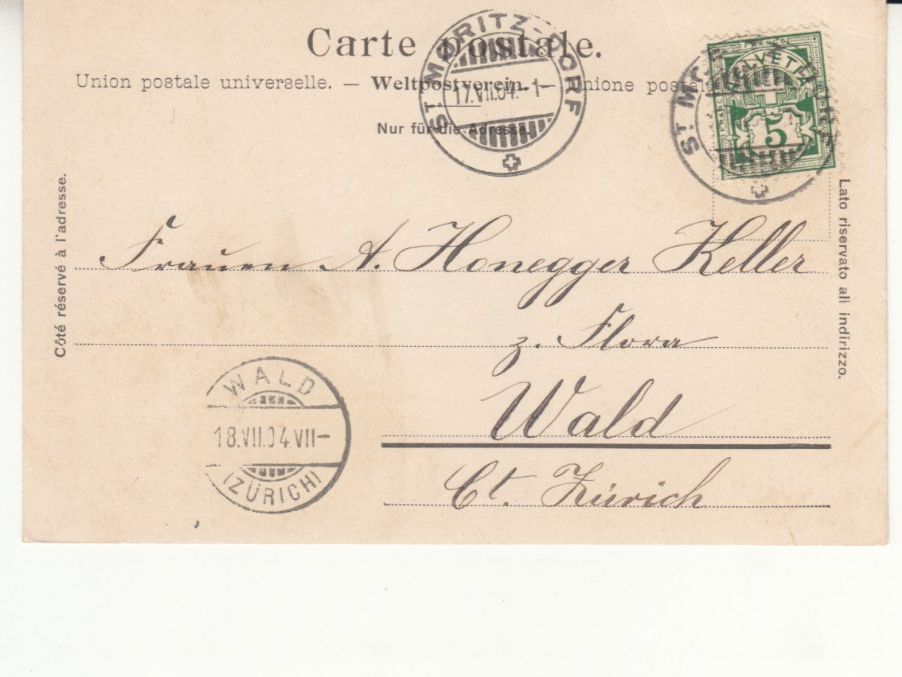 Carte postale.
Union postale universelle. — Weltpostverein. — Unione postale
Nur für die Adresse.
ST MORITZ-DORF
17.VII.04.-1-
HELVETIA
5
ST MORITZ
Côté réservé à l'adresse.
Lato riservato ali indirizzo.
Frauen A. Honegger Keller
z. Flora
Wald
Ct. Zürich
WALD
18.VII.04 VII-
(ZÜRICH)